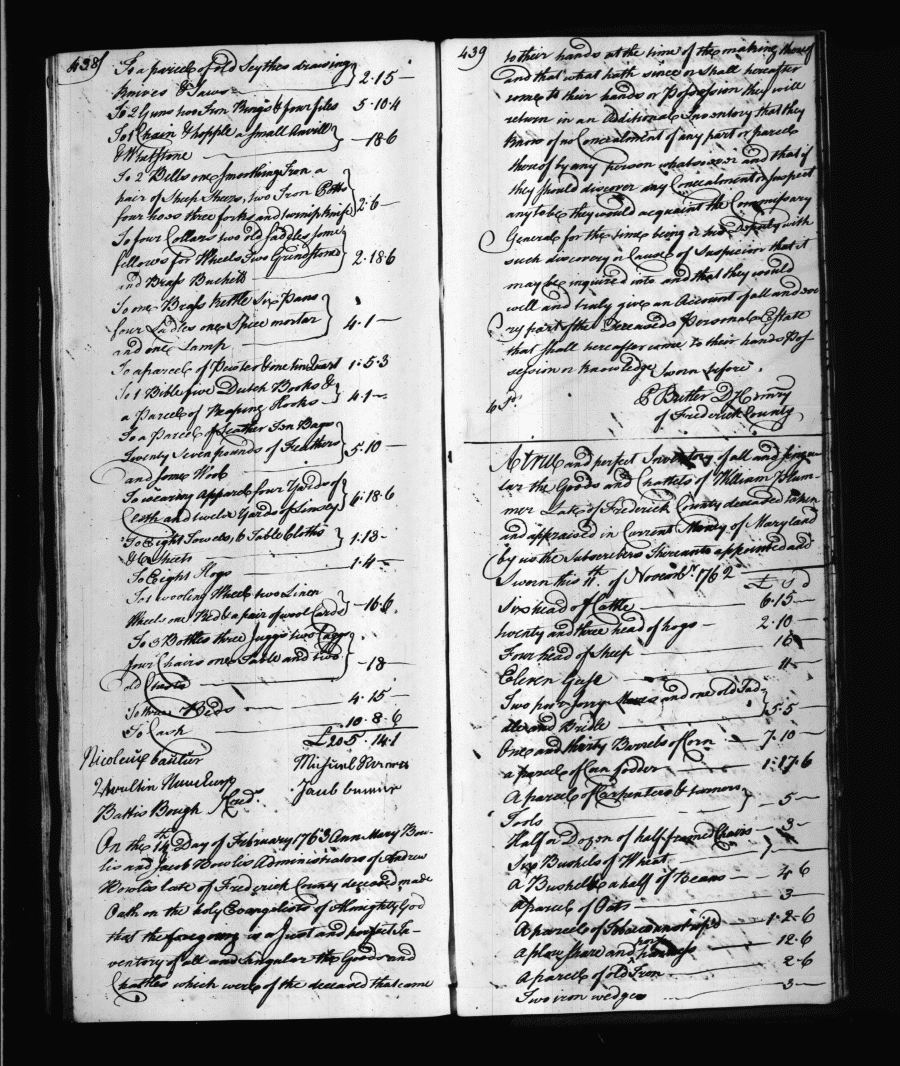 438
To a parcel of old Scythes drawing
knives & Saws } 2.15—
To 2 Guns two Iron Rings & four files 5.10.4
To 1 Chain & hopple a Small Anvill
& Whetstone } —18.6
To 2 Bells one Smoothing Iron a
pair of Sheep Shears, two Iron Potts
four hoes three forks and turnip knife } 2.6—
To four Collars two old Saddles some
fellows for Wheels Two Grindstones
and Brass Buckett } 2.18.6
To one Brass Kettle Six Pans
four Ladles one Spice mortar
and one Lamp } 4.1—
To a parcel of Pewter & one tin Quart 1.5.3
To 1 Bible five Dutch Books &
a Parcel of Reaping Hooks } 4.1—
To a Parcel of Leather Ten Bags
Twenty Seven pounds of Feathers
and some Wool } 5.10—
To wearing Apparel four Yards of
Cloth and twelve Yards of Linsey } 6.18.6
To Eight Towels, 6 Table Cloths
& 6 Sheets } 1.18—
To Eight Hogs 1.4—
To 1 wooling Wheel two Linen
Wheels one Reel & a pair of wool Cards } —16.6
To 3 Bottles three Juggs two
four Chairs one Table and two
old Chests } —18—
To three Beds 4.15
To Cash 10.8.6
£205.14.1
Nicolaus
Michael
Jacob
Battis Bough
On the 14th Day of February 1763 Ann Mary Bow-
lis and Jacob Bowlis Administrators of Andrew
Bowlis late of Frederick County deceased made
Oath on the holy Evangelists of Almighty God
that the foregoing is a Just and perfect In-
ventory of all and Singular the Goods and
Chattles which were of the deceased that came
439
to their hands at the time of the making thereof
and that what hath since or shall hereafter
come to their hands or Possession they will
return in an Additional Inventory that they
know of no Concealment of any part or parcel
thereof by any person whatsoever and that if
they should discover any Concealment or suspect
any to be they would acquaint the Commissary
General for the time being or his Deputy with
such discovery or Cause of Suspicion that it
may be inquired into and that they would
well and truly give an Account of all and eve
ry part of the Deceaseds Personal Estate
that shall hereafter come to their hands Pos
session or knowledge Sworn before
P Butler D Comry
of Frederick County
A true and perfect Inventory of all and singu
lar the Goods and Chattels of William Plum
mer Late of Frederick County deceased taken
and appraised in Current Money of Maryland
by us the Subscribers thereunto appointed and
Sworn this 11th. of Novembr. 1762
£ s d
Six head of Cattle 6.15—
twenty and three head of hogs 2.10—
Four head of Sheep 16
Eleven Geese 11—
Two poor Sorry Mares and one old Sad
dle and Bridle } 5.5—
One and thirty Barrels of Corn 7.10—
a parcel of Corn fodder 1.17.6
A parcel of Carpenters & turners
Tools } —5—
Half a Dozen of half framed Chairs 3—
Six Bushels of Wheat
A Bushel & a half of Beans 4.6
A parcel of Oats 3—
A parcel of Tobacco not strip'd 1.2.6
A plow share and harness 12.6
A parcel of old Iron 2.6
Two iron wedges 3—